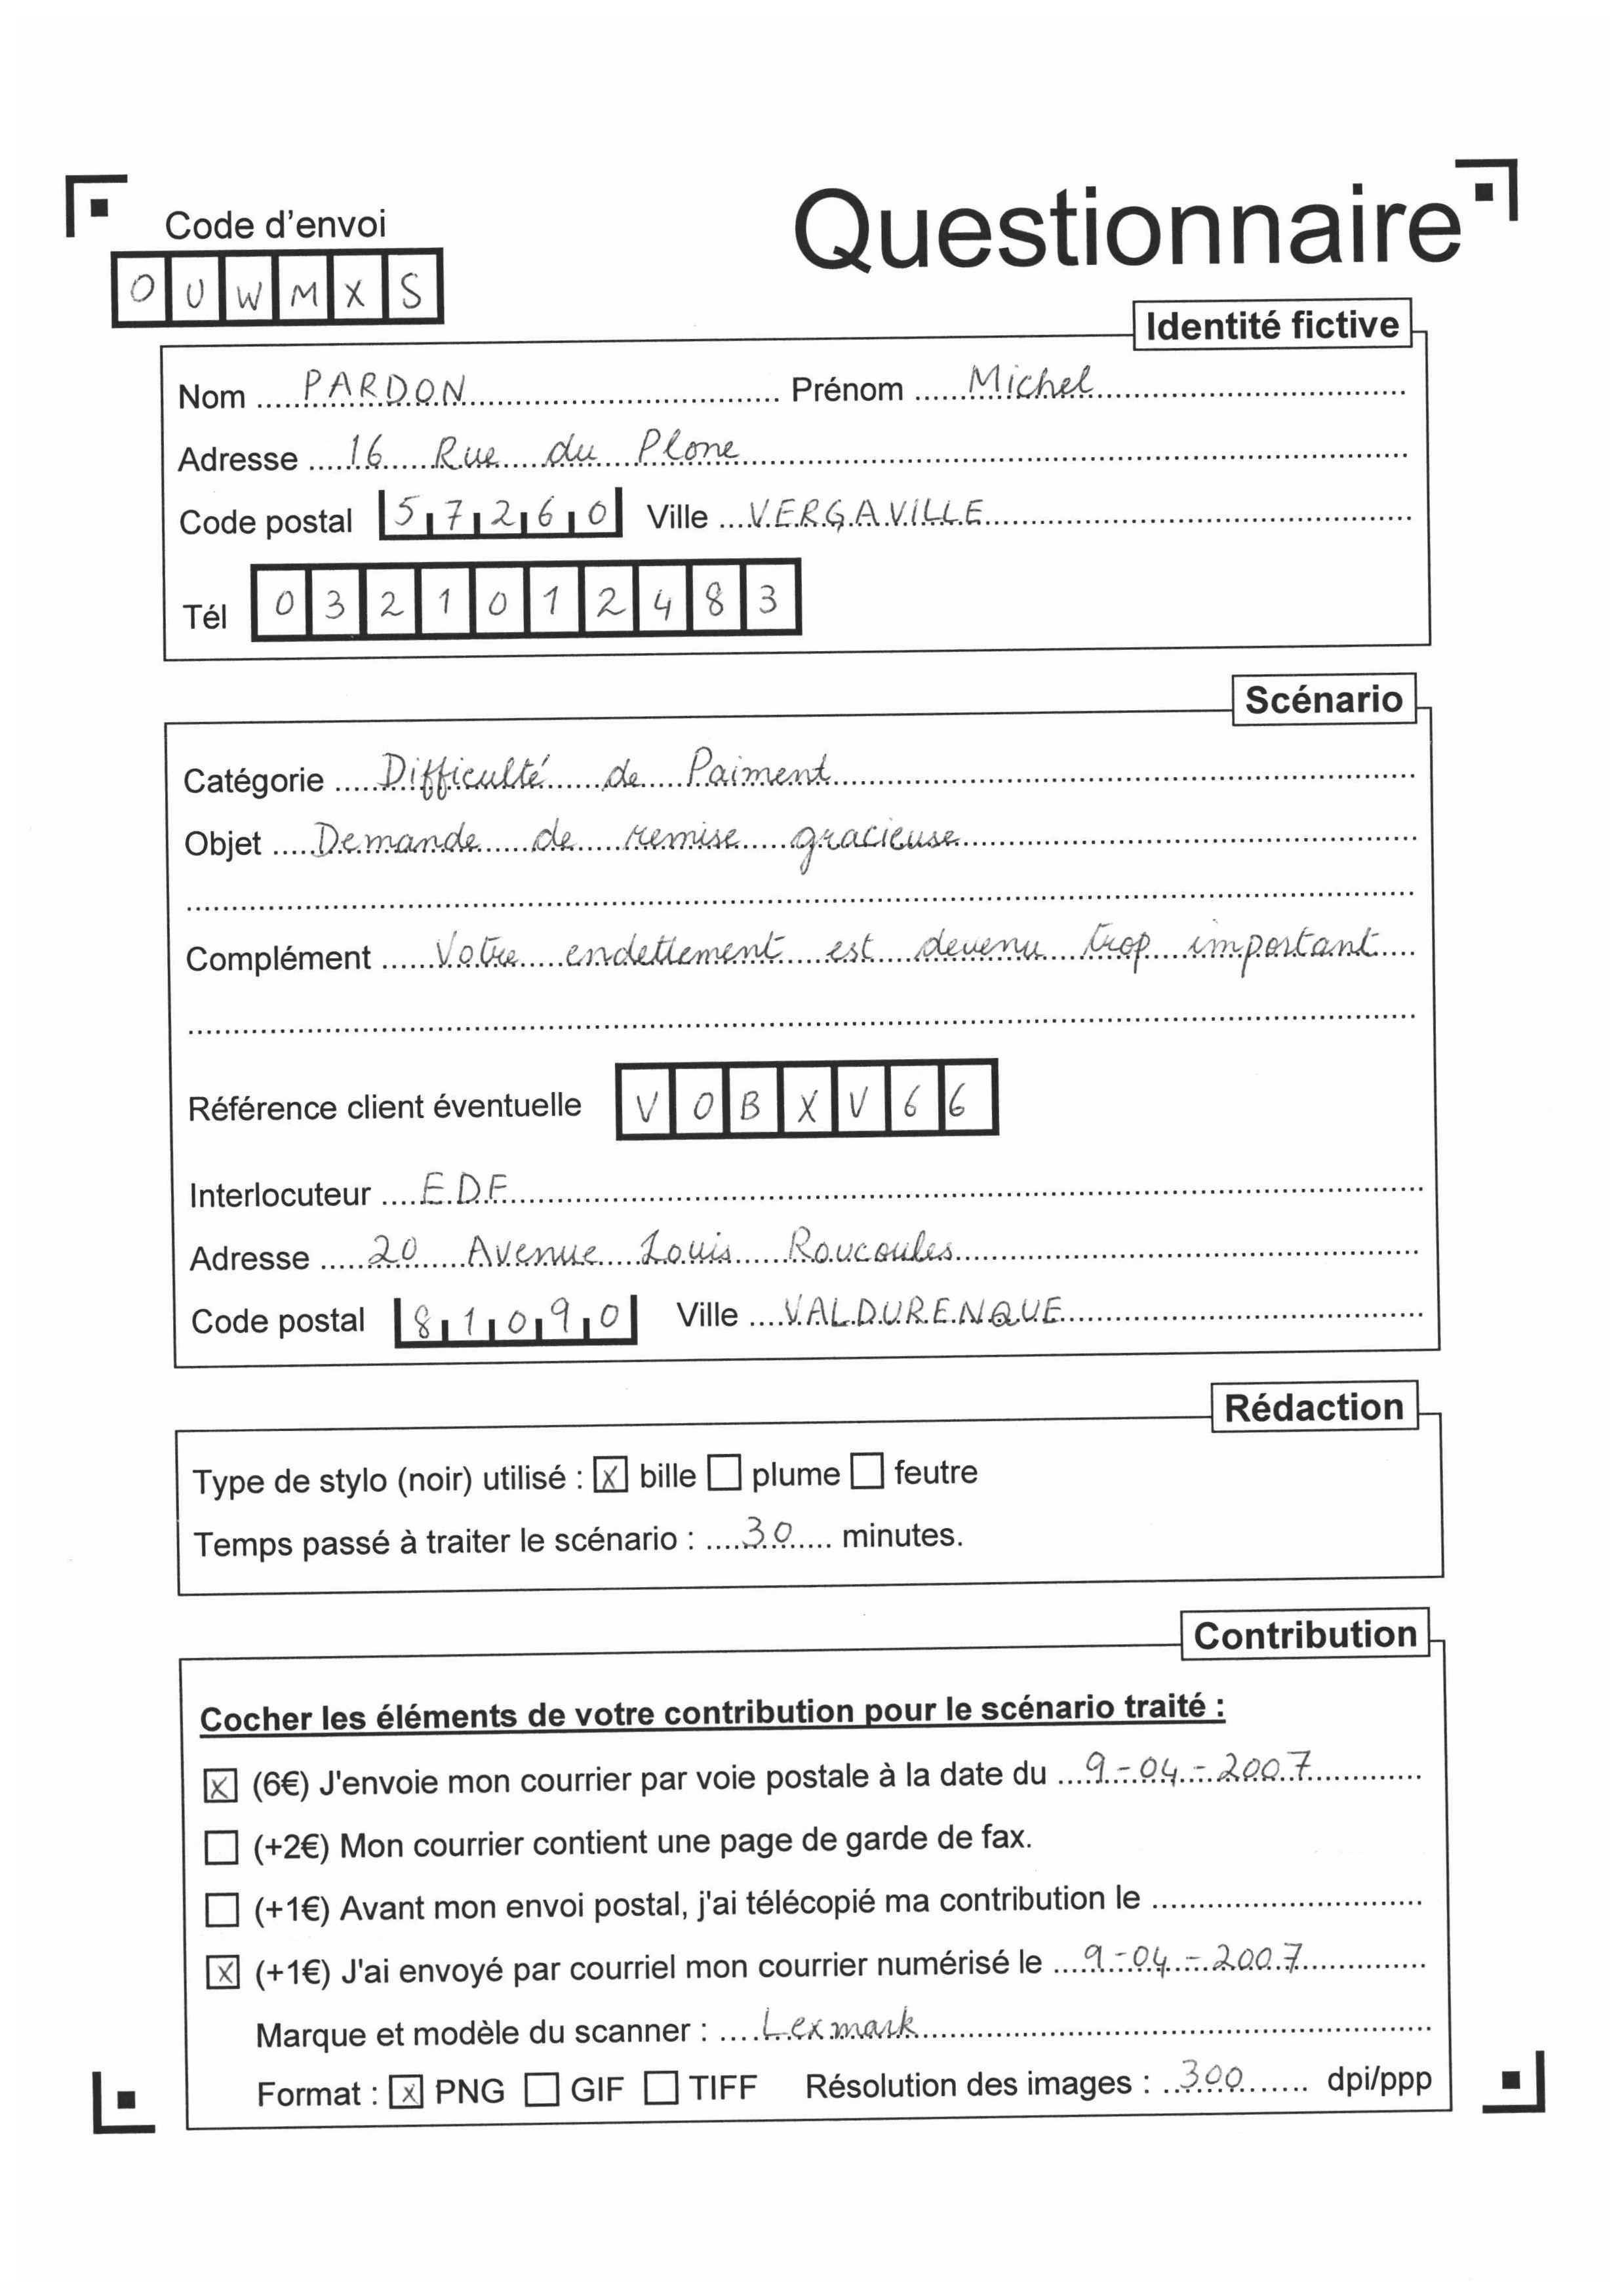 Code d'envoi
Questionnaire
OUWMXS
Identité fictive
Nom PARDON Prénom Michel
Adresse 16 Rue du Plone
Code postal 57260 Ville VERGAVILLE
Tél 0321012483
Scénario
Catégorie Difficulté de Paiment
Objet Demande de remise gracieuse
Complément Votre endettement est devenu trop important
Référence client éventuelle VOBXV66
Interlocuteur EDF
Adresse 20 Avenue Louis Roucoules
Code postal 81090 Ville VALDURENQUE
Rédaction
Type de stylo (noir) utilisé : X bille plume feutre
Temps passé à traiter le scénario : 30 minutes.
Contribution
Cocher les éléments de votre contribution pour le scénario traité :
X (6€) J'envoie mon courrier par voie postale à la date du 9-04-2007
(+2€) Mon courrier contient une page de garde de fax.
(+1€) Avant mon envoi postal, j'ai télécopié ma contribution le
X (+1€) J'ai envoyé par courriel mon courrier numérisé le 9-04-2007
Marque et modèle du scanner : Lexmark
Format : X PNG GIF TIFF Résolution des images : 300 dpi/ppp